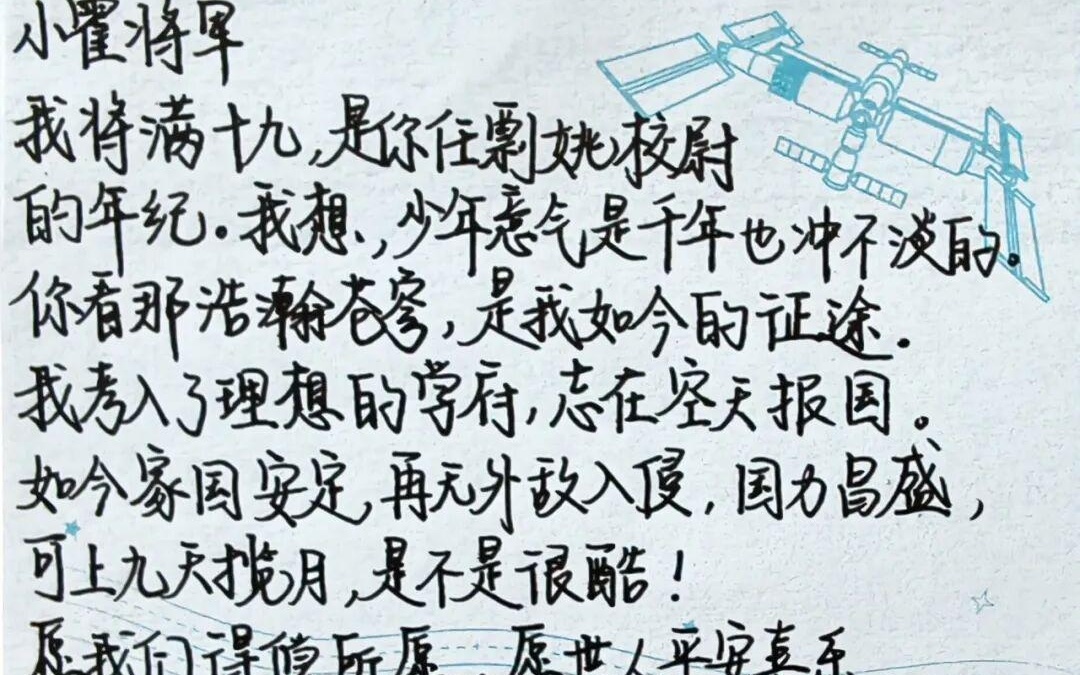 小霍将军
我将满十九,是你任剽姚校尉
的年纪。我想,少年意气是千年也冲不淡的。
你看那浩瀚苍穹,是我如今的证途.
我考入了理想的学府,志在空天报国。
如今家国安定,再无外敌入侵,国力昌盛,
可上九天揽月,是不是很酷!
愿我们得偿所愿,愿世人平安喜乐